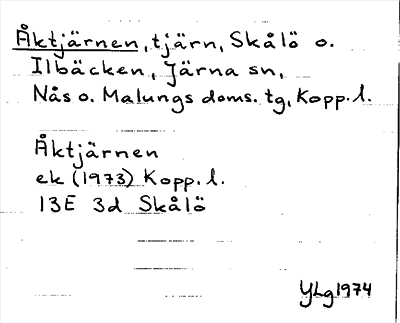 Åktjärnen, tjärn, Skålö o.
Ilbäcken, Järna sn,
Nås o. Malungs doms. tg, Kopp. l.
Åktjärnen
ek (1973) Kopp. l.
13E 3d Skålö
YLg 1974